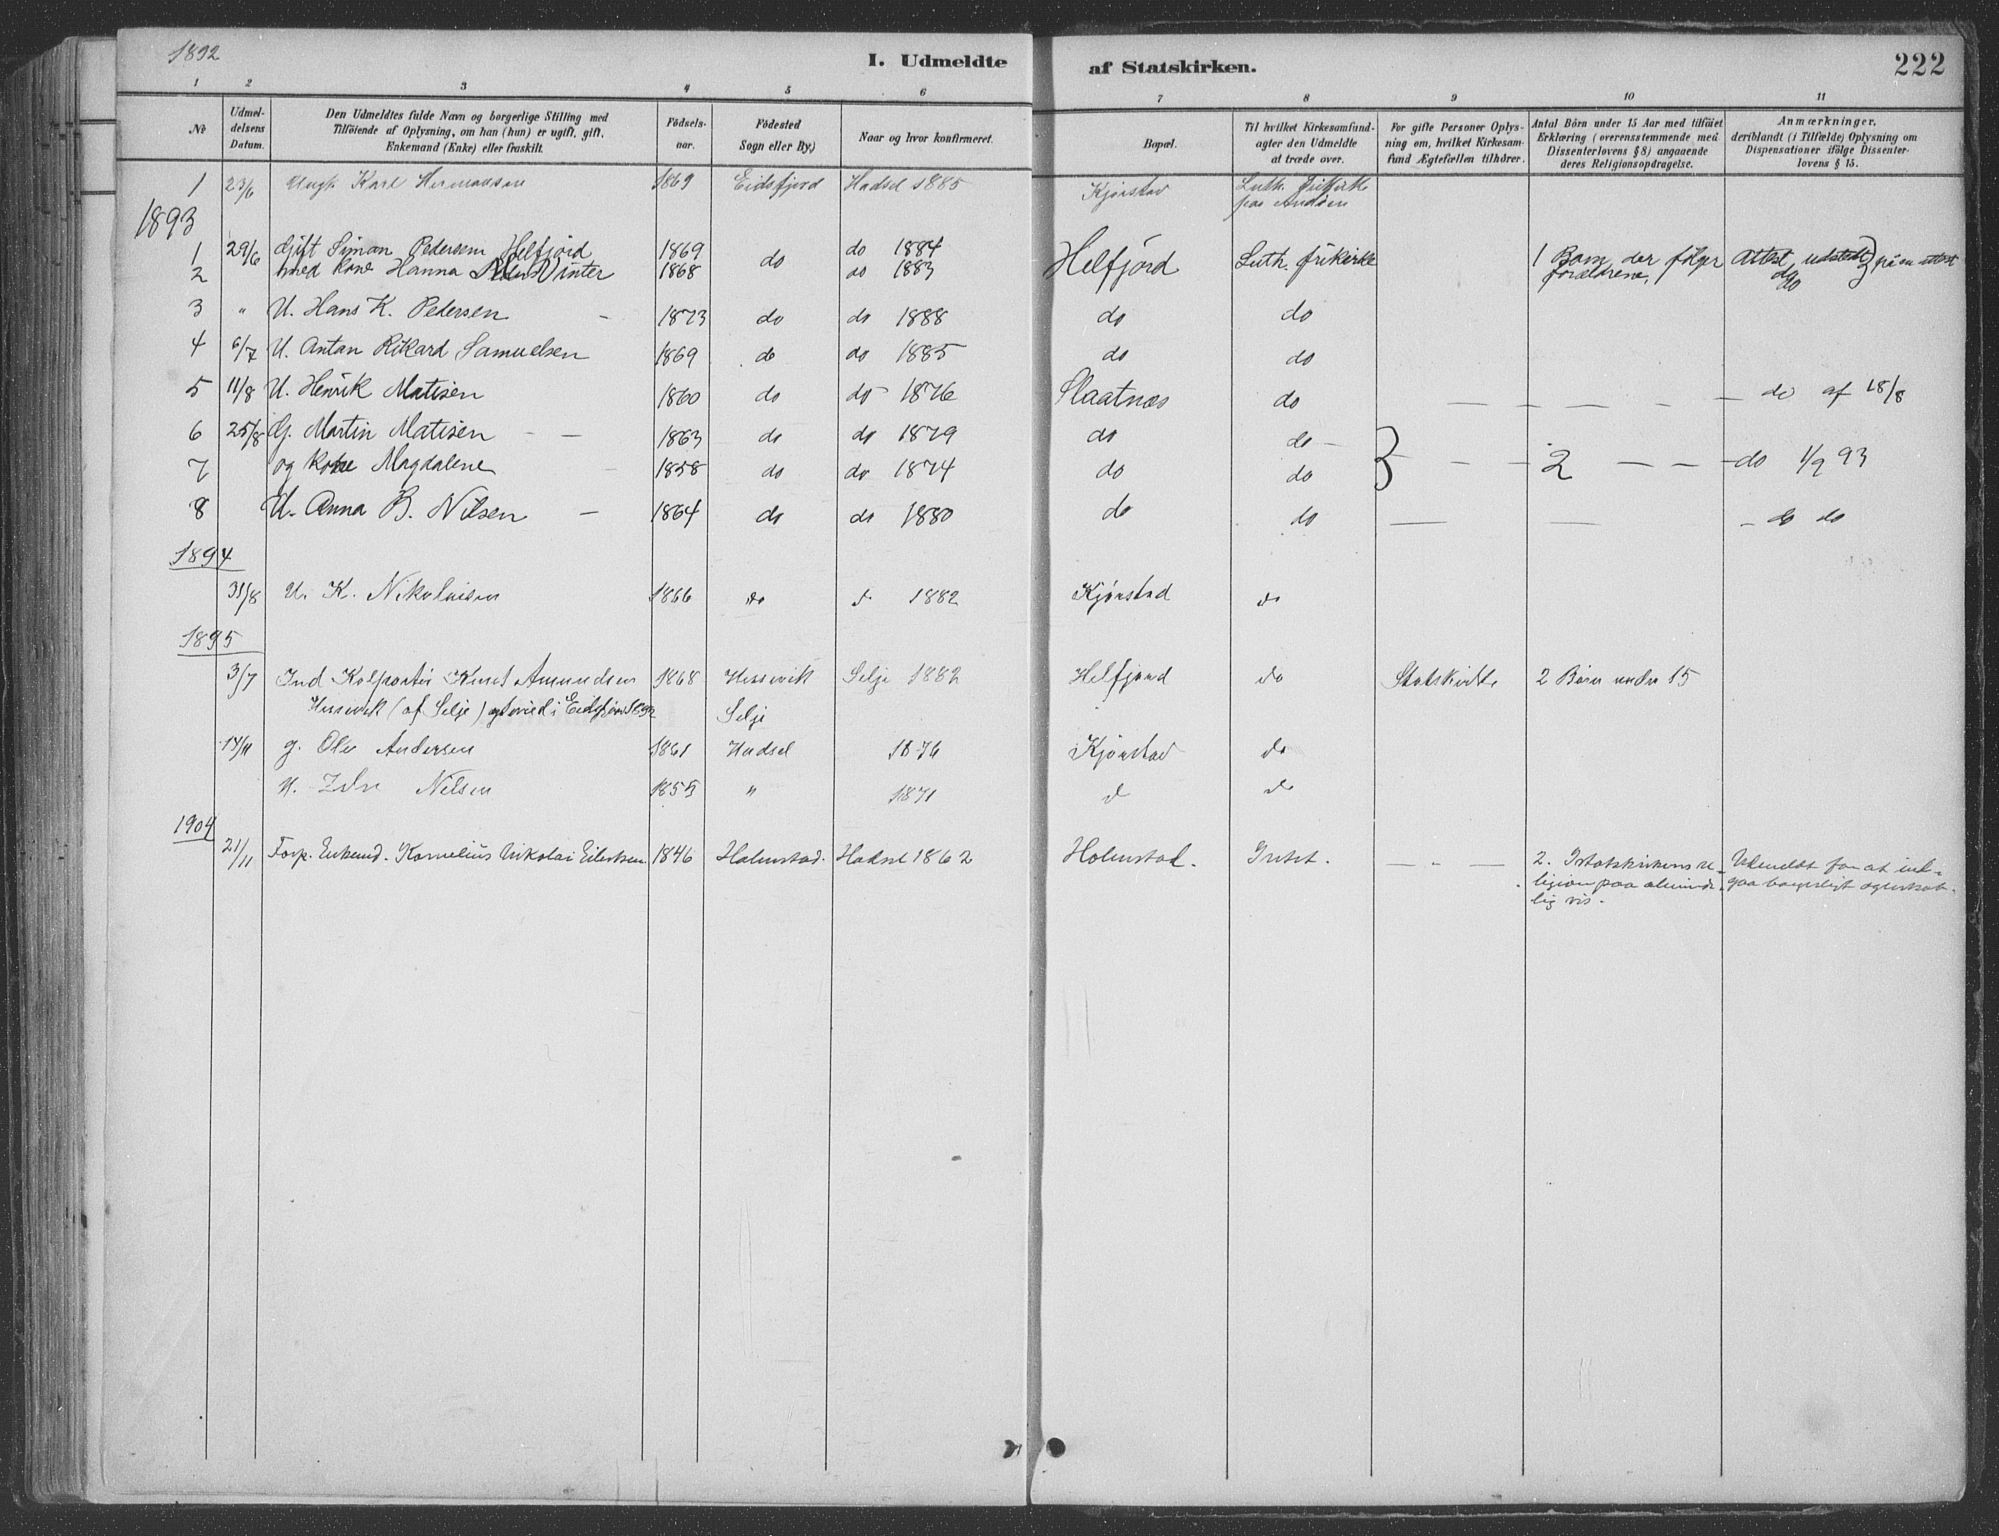 1892
I. Udmeldte af Statskirken.
222
1 2 3 4 5 6 7 8 9 10 11
No
Udmel-
delsens
Datum.
Den Udmeldtes fulde Navn og borgerlige Stilling med
Tilföiende af Oplysning, om han (hun) er ugift, gift,
Enkemand (Enke) eller fraskilt.
Födsels-
aar.
Födested
Sogn eller By.)
Naar og hvor konfirmeret.
Bopæl.
Til hvilket Kirkesamfund-
agter den Udmeldte
at træde over.
For gifte Personer Oplys-
ning om, hvilket Kirkesam-
fund Ægtefællen tilhörer.
Antal Börn under 15 Aar med tilföiet
Erklæring (overensstemmende med
Dissenterlovens § 8) angaaende
deres Religionsopdragelse.
Anmærkninger.
deriblandt (i Tilfælde) Oplysning om
Dispensationer ifölge Dissenter-
lovens § 15.
1 23/6 Ungk. Karl Hermansen 1869 Eidsfjord Hadsel 1885 Kjörstad Luth. frikirke
paa Andöen
1893
1 29/6 Gift Simon Pedersen Helfjord 1869 do do 1884 Helfjörd Luth. frikirke 1 Barn der fölger Attest udstedt på en attest
2 med kone Hanna Winter 1868 do 1883 forældrene. do
3 " U. Hans K. Pedersen - 1873 do do 1888 do do
4 6/7 U. Antan Rikard Samuelsen 1869 do do 1885 do do
5 11/8 U. Henrik Matisen 1860 do do 1876 Slaatnæs do — — — — — do af 18/8
6 25/8 G. Martin Matisen - - 1863 do do 1879 do do -
7 og kone Magdalene - 1858 do do 1874 do do } - - - 2 — - - do 1/9 93
8 U. Anna B. Nilsen - 1864 do do 1880 do do — — - do do
1894
31/8 U. K. Nikolaisen 1866 do d 1882 Kjörstad do
1895
3/7 Ind Kolportör Knut Amundsen 1868 Hessevik Selje 1882 Helfjord do Statskirke 2 Börn under 15
Hessevik (af Selje) Selje
14/11 g. Ole Andersen 1861 Hadsel 1876 Kjörstad do
U. Nilsen 1855 " 1871 d do
1904
21/11 Forp. Enkemd. Kornelius Nikolai Eilertsen 1846 Holmstad. Hadsel 1862 Holmstad. Intet. — " — 2. I statskirkens re- Udmeldt for at ind-
ligion paa alminde- gaa borgerligt ægteskab.
lig vis.